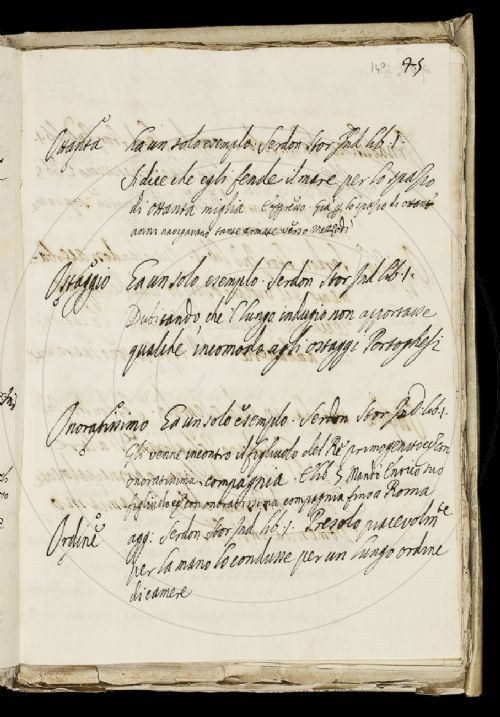 45
Ottanta ha un solo esempio Serdon Stor Ind lib. 1.
Si dice che egli fende il mare per lo spasio
di ottanta miglia E appresso Già p lo spasio di ottant
anni navigavano tante armate verso mezzodì
Ostaggio Ea un solo esempio Serdon Stor Ind lib. 1.
Dubitando che 'l lungo indugio non apportasse
qualche incomodo agli ostaggi Portoghesi
Onoratissimo Ea un solo esempio Serdon Stor Ind lib. 1.
Gli venne incontro il figliuolo del Re primogenito co con
onoratissima compagnia E lib. 5 Mandò Enrico suo
figliuolo con onoratissima compagnia fino a Roma
Ordine agg: Serdon Stor Ind lib. 1. Presolo piacevolmte
per la mano lo condusse per un lungo ordine
di camere